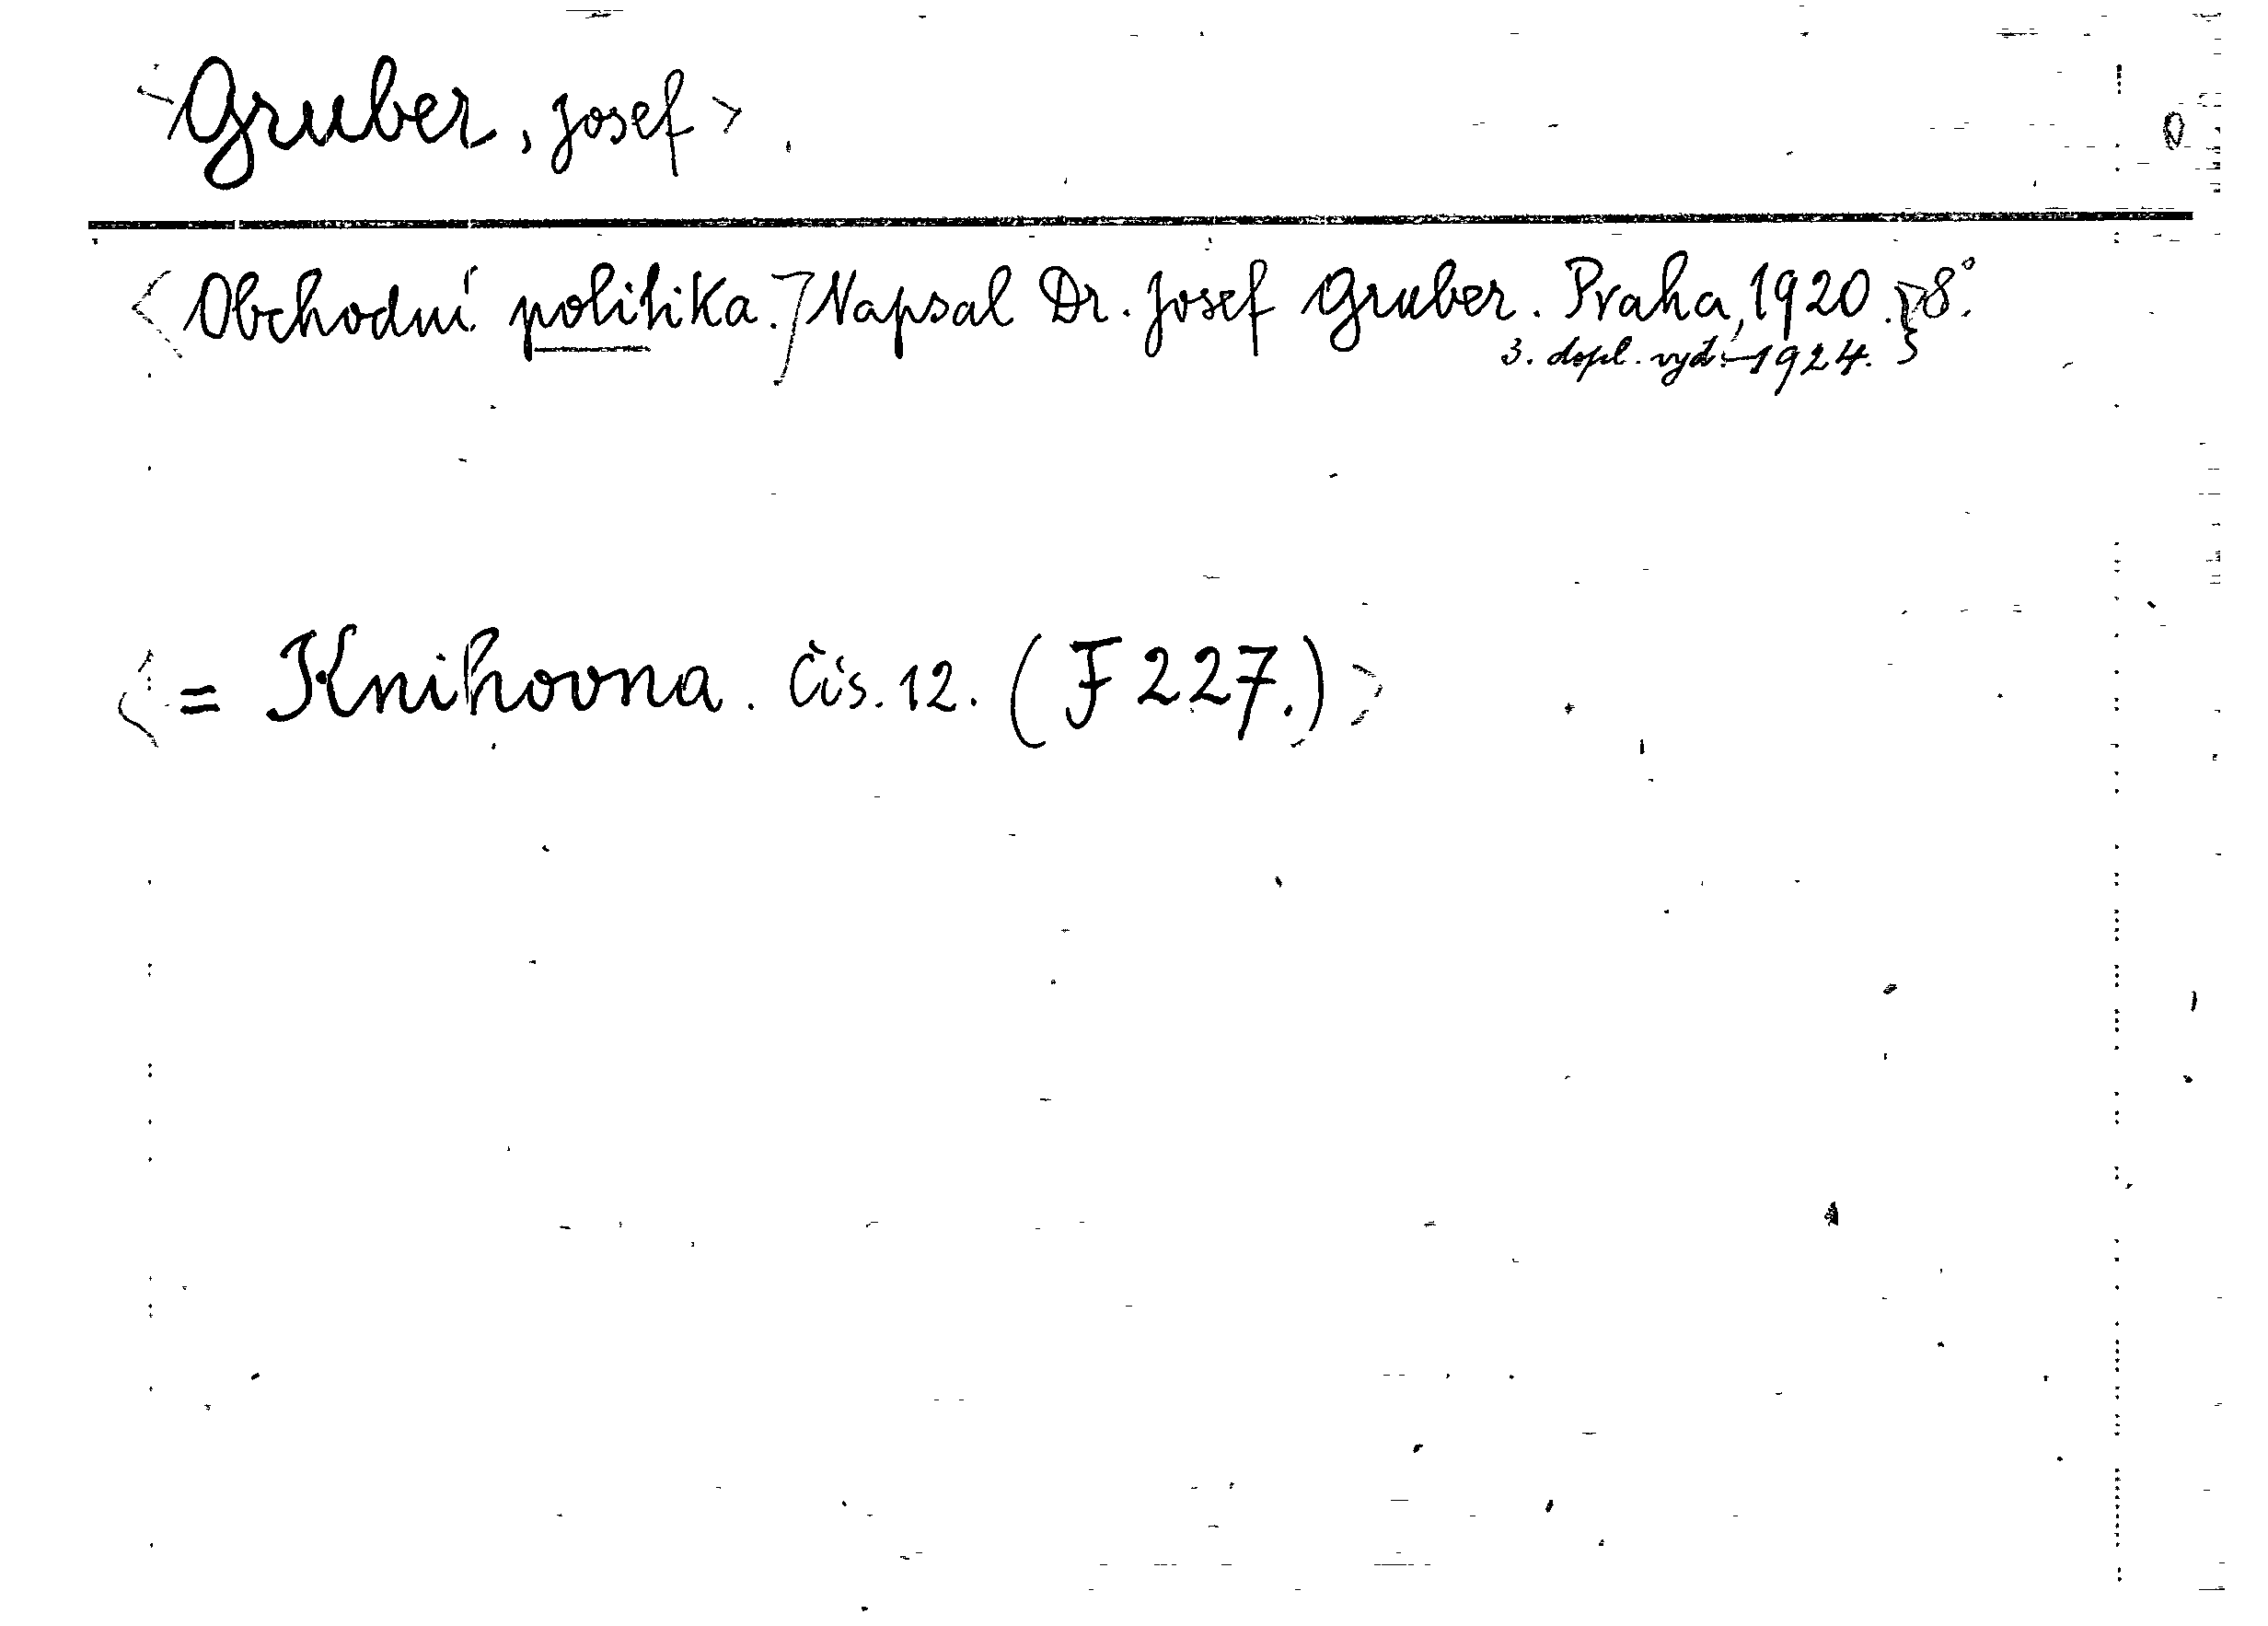 <Gruber, Josef>.
<Obchodní politika.] Napsal Dr. Josef Gruber. Praha, 1920.} 8°.
3. dopl. vyd. – 1924.}
<= Knihovna. Čís. 12. (F 227.)>